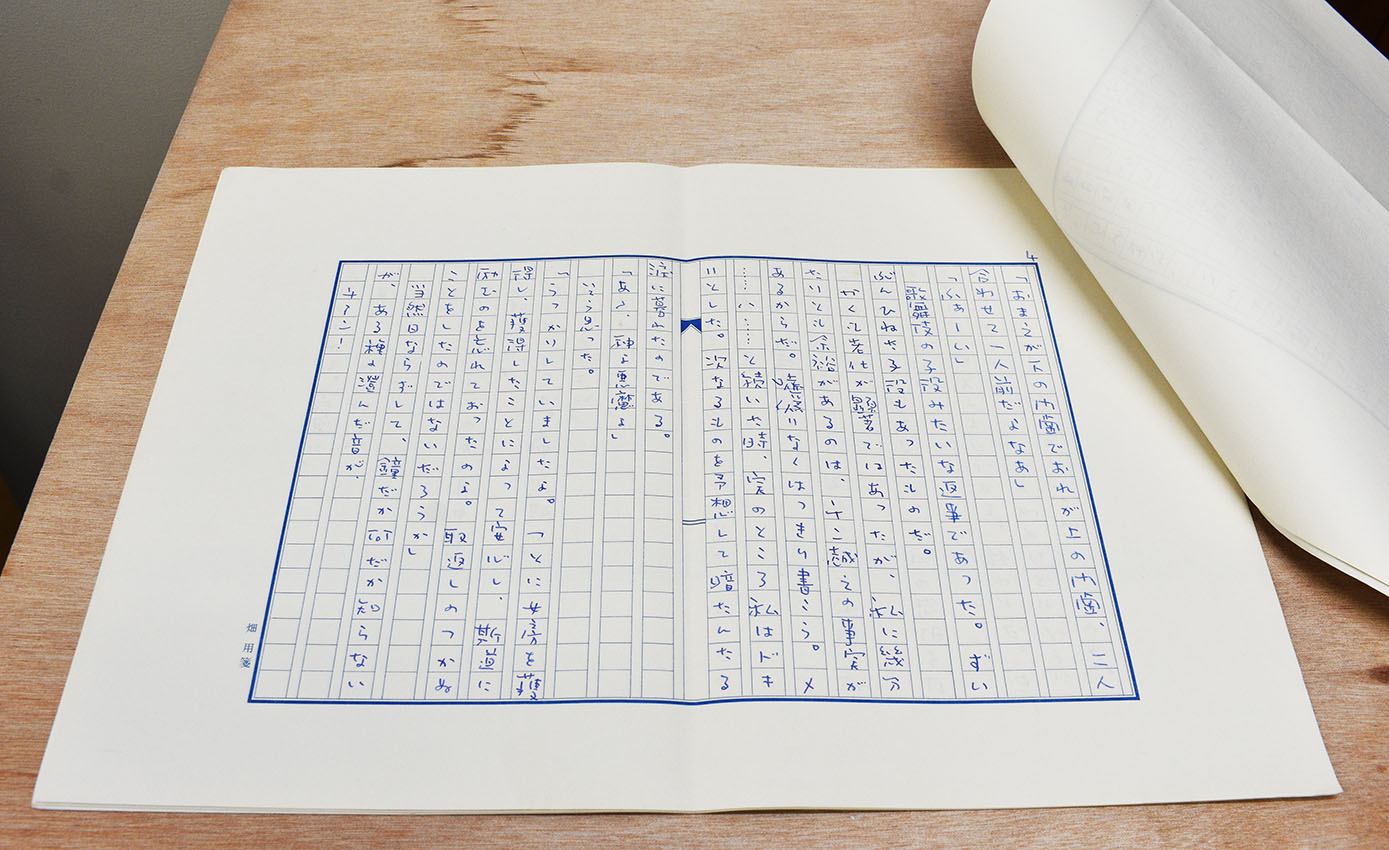 4
「おまえが下の門歯でおれが上の門歯、二人
合わせて一人前だよなあ」
「ふぁーい」
歌舞伎の子役みたいな返事であった。ずい
ぶんひねた子役もあったものだ。
かくも老化が顕著ではあったが、私に幾分
たりとも余裕があるのは、の事実が
あるからだ。遠慮なくはっきり書こう。メ
……ハ……と続いた時、実のところ私はドキ
リとした。次なるものを予想して暗たんたる
涙に暮れたのである。
「あゝ、神よ悪魔よ」
こう思った。
「うっかりしていましたよ。つとに女房を獲
得し、獲得したことによって安心し、斯道に
励むのを忘れておったのよ。取返しのつかぬ
ことをしたのではないだろうか」
当然日ならずして、鐘だか何だか知らない
が、ある種の澄んだ音が、
チーン!
畑用箋